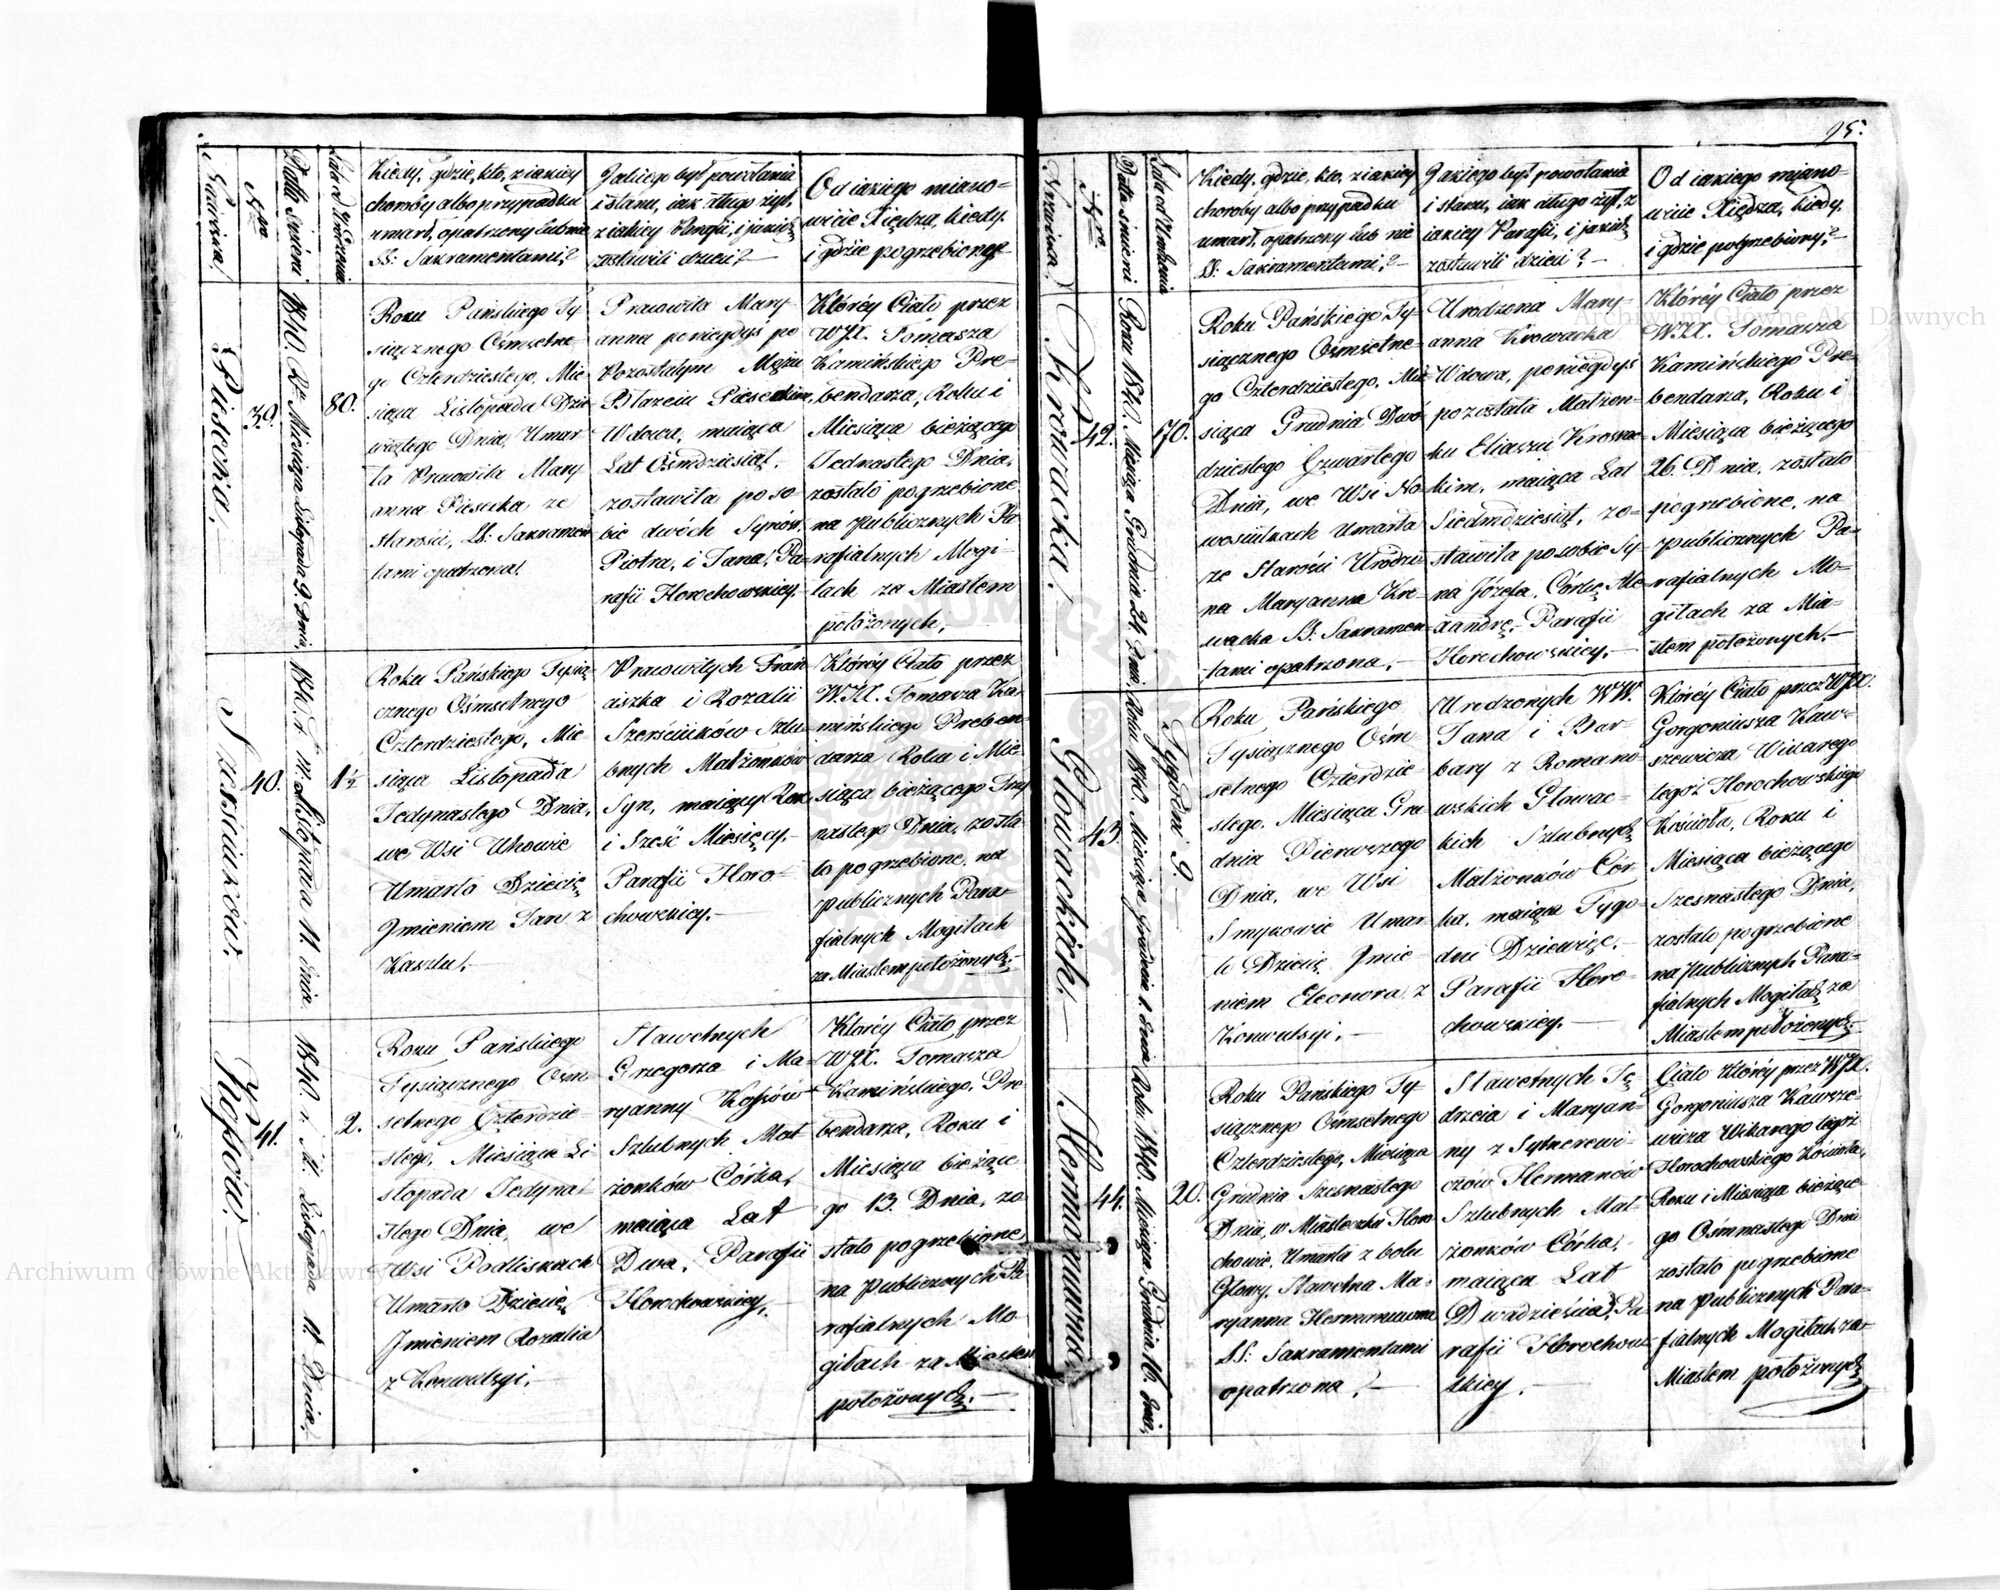 95.
Nazwiska.
Nro
Datta śmierci
Lata od Urodzenia
Kiedy, gdzie, kto, z iakiey
choroby albo przypadku
umarł, opatrzony lub nie
SS: Sakramentami?
Jakiego był powołania
i stanu, iak długo żył,
z iakiey Parafii, i jakich
zostawili dzieci? —
Od iakiego miano=
wicie Xiędza, kiedy,
i gdzie pogrzebiony?
Piesecka.
39.
1840. Ru Miesiąca Listopada 9. Dnia.
80.
Roku Pańskiego Ty
siącznego Ośmsetne=
go Czterdziestego, Mie
siąca Listopada Dzie
wiątego Dnia, Umar
ła Pracowita Mary
anna Piesecka ze
starości, SS: Sakramen
tami opatrzona.
Pracowita Mary
anna po niegdyś po
Pozostałym Mężu
Błażeiu Pieseckim,
Wdowa, maiąca
Lat Ośmdziesiąt,
zostawiła po so
bie dwóch Synów,
Piotra, i Jana, Pa=
rafii Horochowskiey.
Którey Ciało przez
WJX. Tomasza
Kamińskiego Pre=
bendarza, Roku i
Miesiąca bieżącego
Jednastego Dnia,
zostało pogrzebione
na publicznych Pa
rafialnych Mogi=
łach za Miastem
położonych.
Szesściuków.
40.
1840. r. M. Listopada 11. Dnia.
1½
Roku Pańskiego Tysią
cznego Ośmsetnego
Czterdziestego, Mie
siąca Listopada
Jedynastego Dnia,
we Wsi Uhowie
Umarło Dziecię
Jmieniem Jan z
Kaszlu. —
Pracowitych Fran
ciszka i Rozalii
Szesściuków Szlu=
bnych Małżonków
Syn, maiący Rok
i Sześć Miesięcy. —
Parafii Horo=
chowskiey. —
Którey Ciało przez
W.JX. Tomasza Ka
mińskiego Preben=
darza Roku i Mie
siąca bieżącego Trzy
nastego Dnia, zosta
ło pogrzebione, na
publicznych Para=
fialnych Mogiłach
za Miastem położonych. —
Kossów.
41.
1840. r. M. Listopada 11. Dnia.
2.
Roku Pańskiego
Tysiącznego Ośm
setnego Czterdzie=
stego, Miesiąca Li
stopada Jedyna
stego Dnia, we
Wsi Podliskach
Umarło Dziecię
Jmieniem Rozalia
z Konwulsyi. —
Sławetnych
Grzegorza i Ma=
ryanny Kossów
Szlubnych Mał
żonków Córka,
maiąca Lat
Dwa, Parafii
Horochowskiey.
Którey Ciało przez
WJX. Tomasza
Kamińskiego, Pre
bendarza, Roku i
Miesiąca bieżące
go 13. Dnia, zo
stało pogrzebione
na publicznych Pa
rafialnych Mo
giłach za Miastem
położonych. —
Nazwiska.
Nro
Datta śmierci
Lata od Urodzenia
Kiedy, gdzie, kto, z iakiey
choroby albo przypadku
umarł, opatrzony lub nie
SS: Sakramentami? —
Jakiego był powołania
i stanu, iak długo żył, z
iakiey Parafii, i jakich
zostawili dzieci? —
Od iakiego miano=
wicie Xiędza, kiedy,
i gdzie pogrzebiony? —
Krowacka.
42.
Roku 1840. Miesiąca Grudnia 24. Dnia.
70.
Roku Pańskiego Ty
siącznego Ośmsetne=
go Czterdziestego, Mie
siąca Grudnia Dwó
dziestego Czwartego
Dnia, we Wsi No
wosiułkach Umarła
ze Starości Urodzo
na Maryanna Kro=
wacka SS: Sakramen=
tami opatrzona. —
Urodzona Mary=
anna Krowacka
Wdowa, po niegdyś
pozostała Małżon=
ku Eliaszu Krowac
kim, maiąca Lat
Siedmdziesiąt, zo=
stawiła po sobie Sy
na Józefa, Córkę Ale
xandrę, Parafii
Horochowskiey. —
Którey Ciało przez
W.JX. Tomasza
Kamińskiego Pre=
bendarza, Roku i
Miesiąca bieżącego
26. Dnia, zostało
pogrzebione, na
publicznych Pa=
rafialnych Mo=
giłach za Mia=
stem położonych. —
Głowackich.
43.
Roku 1840. Miesiąca Grudnia 1. Dnia
Tygodni 9.
Roku Pańskiego
Tysiącznego Ośm
setnego Czterdzie=
stego, Miesiąca Gru
dnia Pierwszego
Dnia, we Wsi
Smykowie Umar
ło Dziecię Jmie=
niem Eleonora, z
Konwulsyi. —
Urodzonych WW.
Jana i Bar=
bary z Romano=
wskich Głowac=
kich Szlubnych
Małżonków Cór
ka, maiąca Tygo
dni Dziewięć. —
Parafii Horo=
chowskiey. —
Którey Ciało przez WJX.
Gorgoniusza Kaw=
szewicza Wikarego
tegoż Horochowskiego
Kościoła, Roku i
Miesiąca bieżącego
Szesnastego Dnia,
zostało pogrzebione
na publicznych Para=
fialnych Mogiłach za
Miastem położonych. —
Hermanuwna
44.
Roku 1840. Miesiąca Grudnia 16. Dnia.
20.
Roku Pańskiego Ty
siącznego Ośmsetnego
Czterdziestego, Miesiąca
Grudnia Szesnastego
Dnia, w Miasteczku Horo
chowie, Umarła z bolu
Głowy, Sławetna Ma=
ryanna Hermanuwna
SS: Sakramentami
opatrzona. —
Sławetnych Ję
drzeia i Maryan=
ny z Sytnerowi=
czów Hermanów
Szlubnych Mał=
żonków Córka,
maiąca Lat
Dwadzieścia, Pa=
rafii Horochow=
skiey. —
Ciało Którey przez WJX.
Gorgoniusza Kawsze=
wicza Wikarego tegoż
Horochowskiego Kościoła,
Roku i Miesiąca bieżące=
go Ośmnastego Dnia
zostało pogrzebione
na publicznych Para=
fialnych Mogiłach za
Miastem położonych
Archiwum Główne Akt Dawnych
Archiwum Główne Akt Dawnych